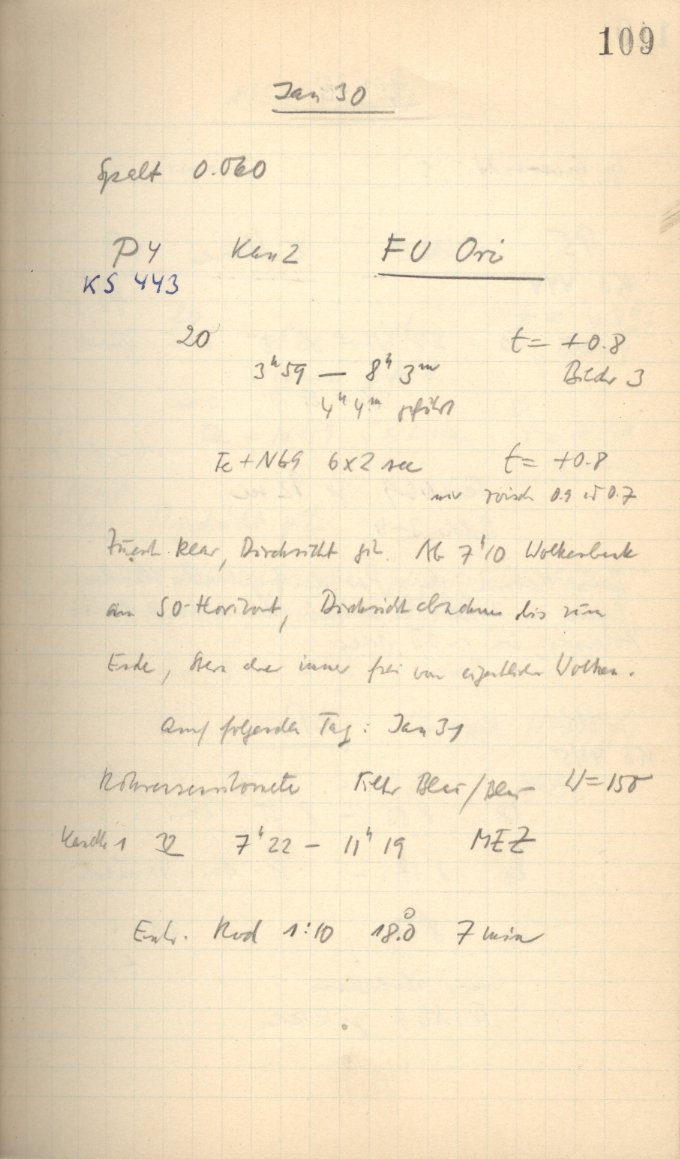 109
Jan 30
Spalt 0.060
P4 Kam 2 FU Ori
KS 443
20 t = +0.8
3h 59 — 8h 3m Bilder 3
4h 4m geführt
Fe + N69 6x2 sec t = +0.8
0.9 0.7
Zuerst klar, Durchsicht gut. Ab 7h10 Wolkenbank
am SO-Horizont, Durchsicht abnehmend bis zum
Ende, Stern aber immer frei von eigentlichen Wolken.
am folgenden Tag: Jan 31
Röhrensensitometer Filter Blau/Blau U=150
1 7h 22 — 11h 19 MEZ
Entw. Rod 1:10 18.0° 7 min